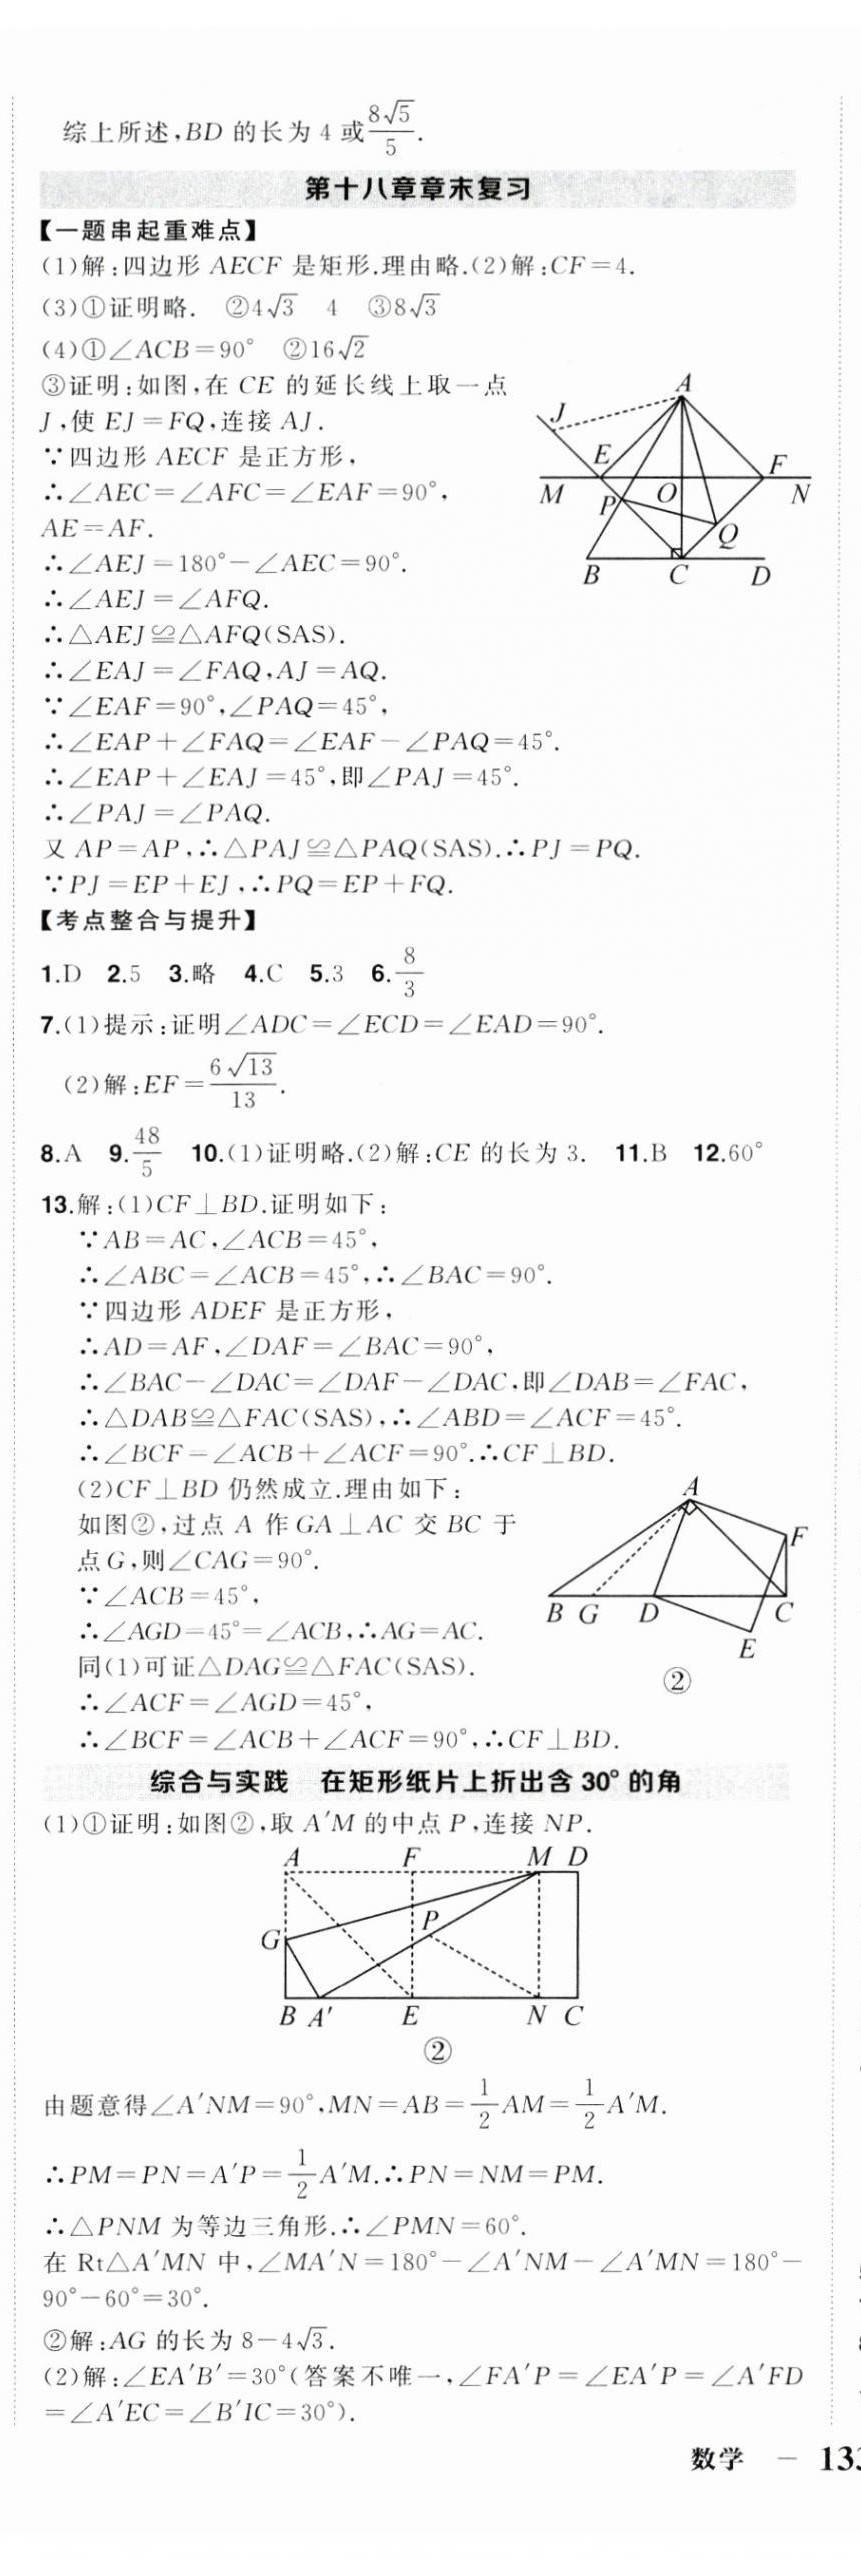 综上所述,BD 的长为 4 或 8√5/5.
第十八章章末复习
【一题串起重难点】
(1)解:四边形 AECF 是矩形.理由略.(2)解:CF=4.
(3)①证明略. ②4√3 4 ③8√3
(4)①∠ACB=90° ②16√2
③证明:如图,在 CE 的延长线上取一点
J,使 EJ=FQ,连接 AJ.
∵四边形 AECF 是正方形,
∴∠AEC=∠AFC=∠EAF=90°,
AE=AF.
∴∠AEJ=180°-∠AEC=90°.
∴∠AEJ=∠AFQ.
∴△AEJ≌△AFQ(SAS).
∴∠EAJ=∠FAQ,AJ=AQ.
∵∠EAF=90°,∠PAQ=45°,
∴∠EAP+∠FAQ=∠EAF-∠PAQ=45°.
∴∠EAP+∠EAJ=45°,即∠PAJ=45°.
∴∠PAJ=∠PAQ.
又 AP=AP,∴△PAJ≌△PAQ(SAS).∴PJ=PQ.
∵PJ=EP+EJ,∴PQ=EP+FQ.
A
J
E
F
M
P
O
N
Q
B
C
D
【考点整合与提升】
1.D 2.5 3.略 4.C 5.3 6.8/3
7.(1)提示:证明∠ADC=∠ECD=∠EAD=90°.
(2)解:EF=6√13/13.
8.A 9.48/5 10.(1)证明略.(2)解:CE 的长为 3. 11.B 12.60°
13.解:(1)CF⊥BD.证明如下:
∵AB=AC,∠ACB=45°,
∴∠ABC=∠ACB=45°,∴∠BAC=90°.
∵四边形 ADEF 是正方形,
∴AD=AF,∠DAF=∠BAC=90°,
∴∠BAC-∠DAC=∠DAF-∠DAC,即∠DAB=∠FAC,
∴△DAB≌△FAC(SAS),∴∠ABD=∠ACF=45°.
∴∠BCF=∠ACB+∠ACF=90°.∴CF⊥BD.
(2)CF⊥BD 仍然成立.理由如下:
如图②,过点 A 作 GA⊥AC 交 BC 于
点 G,则∠CAG=90°.
∵∠ACB=45°,
∴∠AGD=45°=∠ACB,∴AG=AC.
同(1)可证△DAG≌△FAC(SAS).
∴∠ACF=∠AGD=45°,
∴∠BCF=∠ACB+∠ACF=90°,∴CF⊥BD.
A
F
B G D C
E
②
综合与实践 在矩形纸片上折出含 30°的角
(1)①证明:如图②,取 A′M 的中点 P,连接 NP.
A F M D
P
G
B A′ E N C
②
由题意得∠A′NM=90°,MN=AB=1/2AM=1/2A′M.
∴PM=PN=A′P=1/2A′M.∴PN=NM=PM.
∴△PNM 为等边三角形.∴∠PMN=60°.
在 Rt△A′MN 中,∠MA′N=180°-∠A′NM-∠A′MN=180°-
90°-60°=30°.
②解:AG 的长为 8-4√3.
(2)解:∠EA′B′=30°(答案不唯一,∠FA′P=∠EA′P=∠A′FD
=∠A′EC=∠B′IC=30°).
数学 - 133